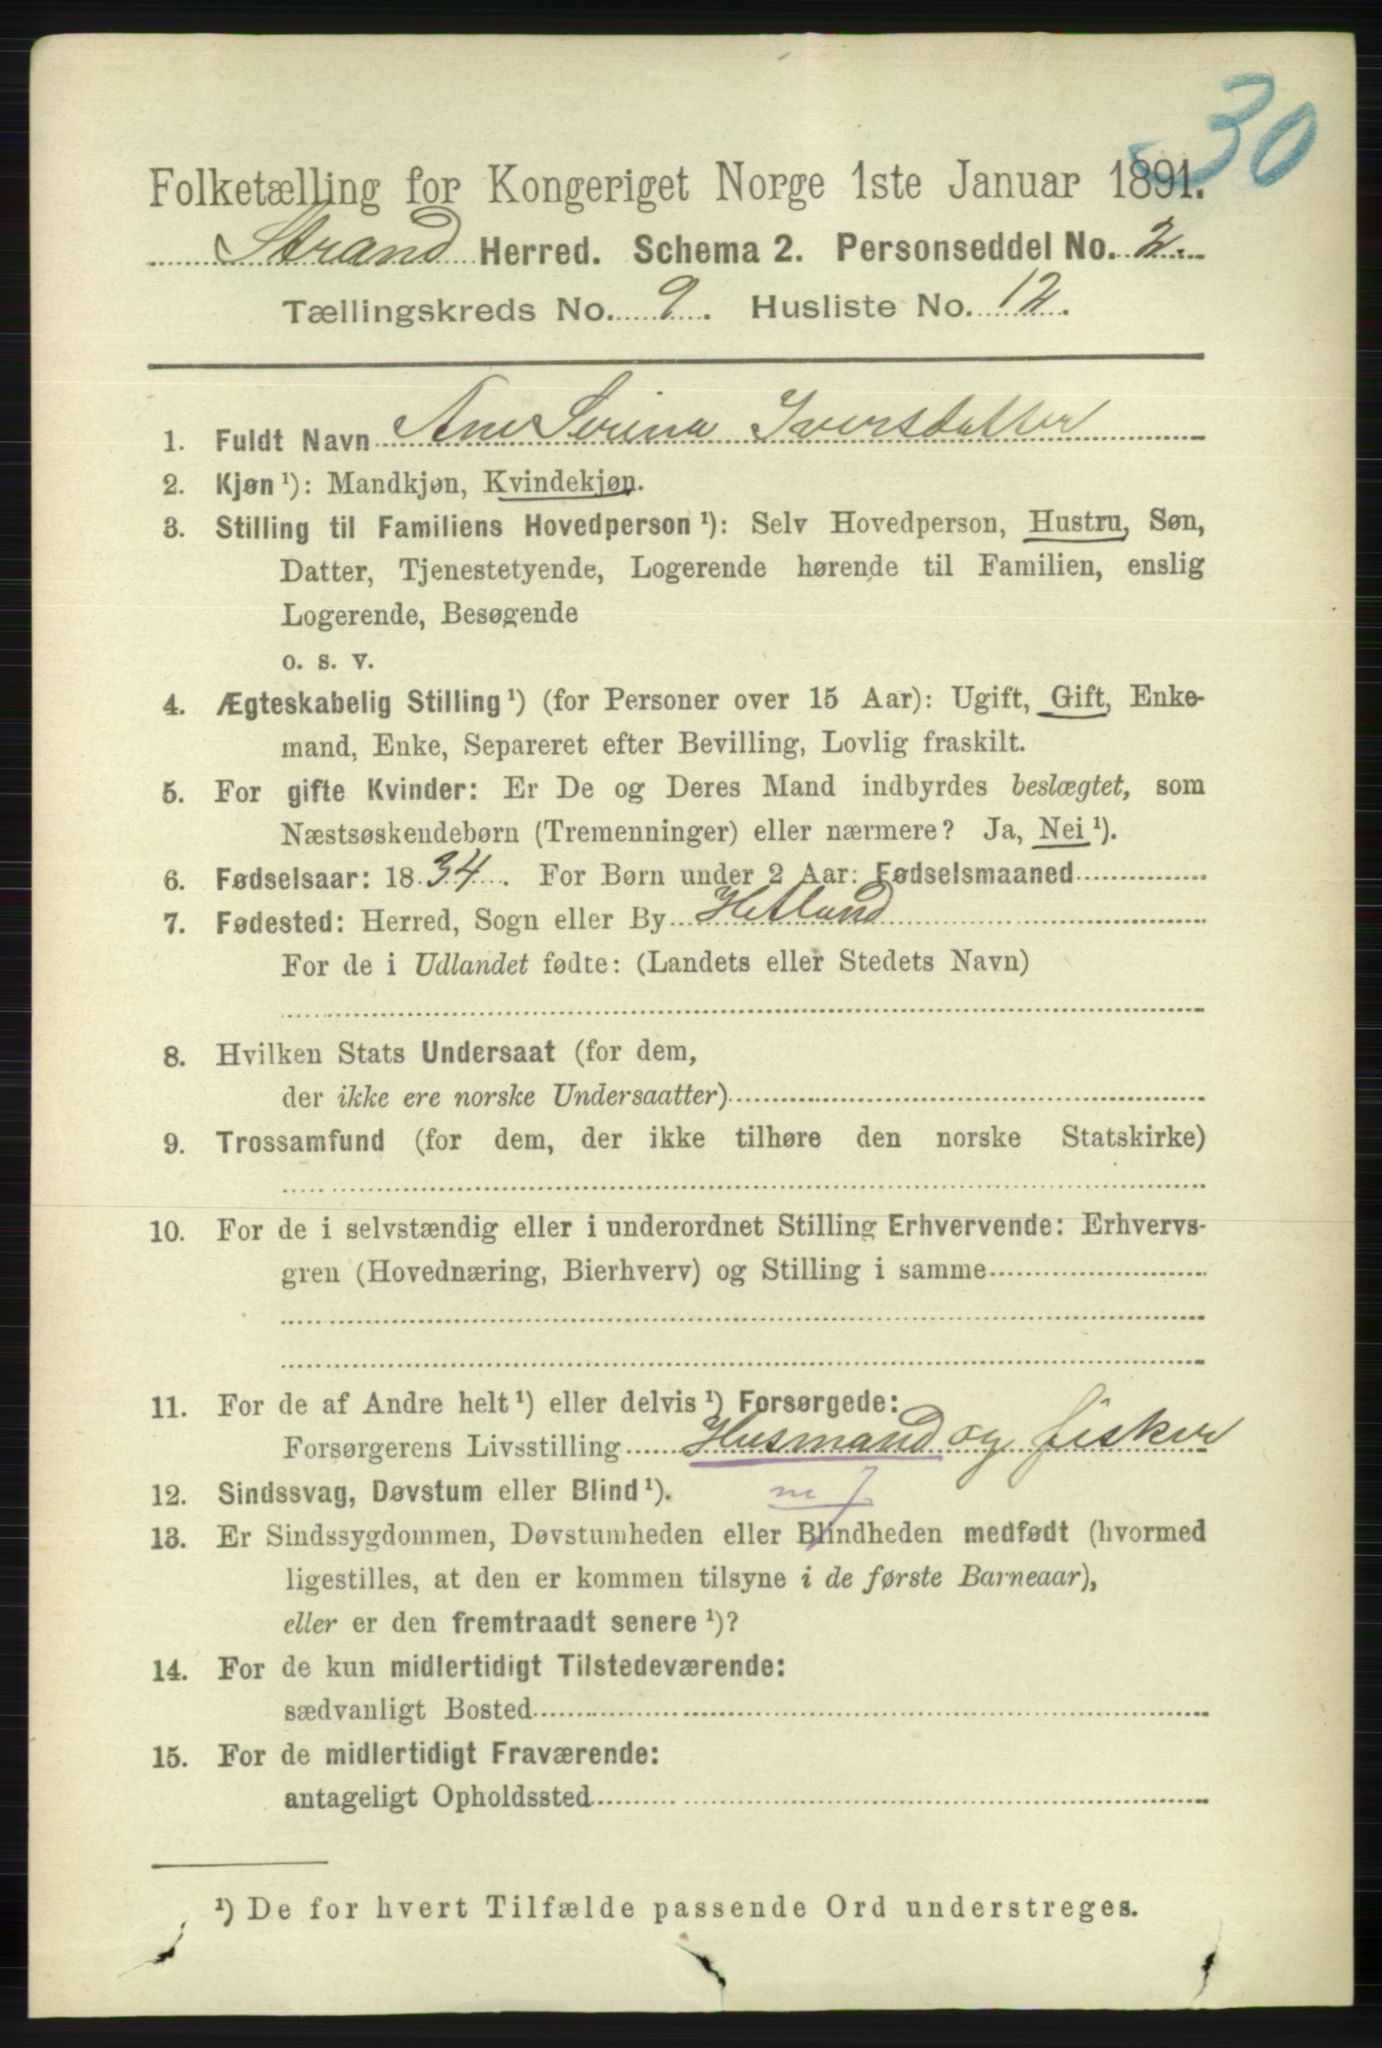 30
Folketælling for Kongeriget Norge 1ste Januar 1891.
Strand Herred. Schema 2. Personseddel No. 2.
Tællingskreds No. 9. Husliste No. 12.
1. Fuldt Navn Ane Serina Iversdatter
2. Kjøn ¹): Mandkjøn, Kvindekjøn.
3. Stilling til Familiens Hovedperson ¹): Selv Hovedperson, Hustru, Søn,
Datter, Tjenestetyende, Logerende hørende til Familien, enslig
Logerende, Besøgende
o. s. v.
4. Ægteskabelig Stilling ¹) (for Personer over 15 Aar): Ugift, Gift, Enke-
mand, Enke, Separeret efter Bevilling, Lovlig fraskilt.
5. For gifte Kvinder: Er De og Deres Mand indbyrdes beslægtet, som
Næstsøskendebørn (Tremenninger) eller nærmere? Ja, Nei ¹).
6. Fødselsaar: 1834. For Børn under 2 Aar: Fødselsmaaned
7. Fødested: Herred, Sogn eller By Hetland
For de i Udlandet fødte: (Landets eller Stedets Navn)
8. Hvilken Stats Undersaat (for dem,
der ikke ere norske Undersaatter)
9. Trossamfund (for dem, der ikke tilhøre den norske Statskirke)
10. For de i selvstændig eller i underordnet Stilling Erhvervende: Erhvervs-
gren (Hovednæring, Bierhverv) og Stilling i samme
11. For de af Andre helt ¹) eller delvis ¹) Forsørgede:
Forsørgerens Livsstilling Husmand og fisker
12. Sindssvag, Døvstum eller Blind ¹).
13. Er Sindssygdommen, Døvstumheden eller Blindheden medfødt (hvormed
ligestilles, at den er kommen tilsyne i de første Barneaar),
eller er den fremtraadt senere ¹)?
14. For de kun midlertidigt Tilstedeværende:
sædvanligt Bosted
15. For de midlertidigt Fraværende:
antageligt Opholdssted
¹) De for hvert Tilfælde passende Ord understreges.